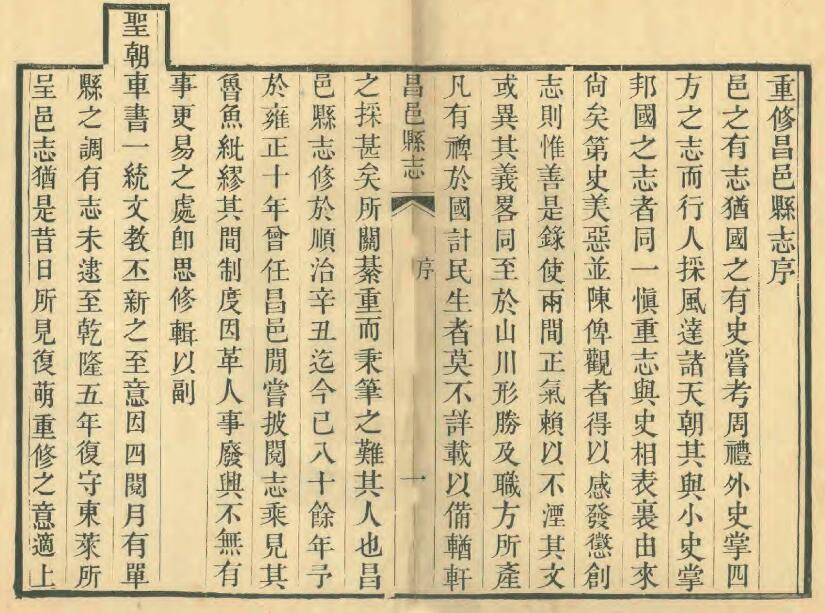 重修昌邑縣志序
邑之有志猶國之有史嘗考周禮外史掌四
方之志而行人採風達諸天朝其與小史掌
邦國之志者同一愼重志與史相表裏由來
尙矣第史美惡並陳俾觀者得以感發懲創
志則惟善是錄使兩間正氣賴以不湮其文
或異其義畧同至於山川形勝及職方所產
凡有裨於國計民生者莫不詳載以備輶軒
昌邑縣志 序 一
之採甚矣所關綦重而秉筆之難其人也昌
邑縣志修於順治辛丑迄今已八十餘年予
於雍正十年曾任昌邑閒嘗披閱志乘見其
魯魚紕繆其間制度因革人事廢興不無有
事更易之處卽思修輯以副
聖朝車書一統文教丕新之至意因四閱月有單
縣之調有志未逮至乾隆五年復守東萊所
呈邑志猶是昔日所見復萌重修之意適上